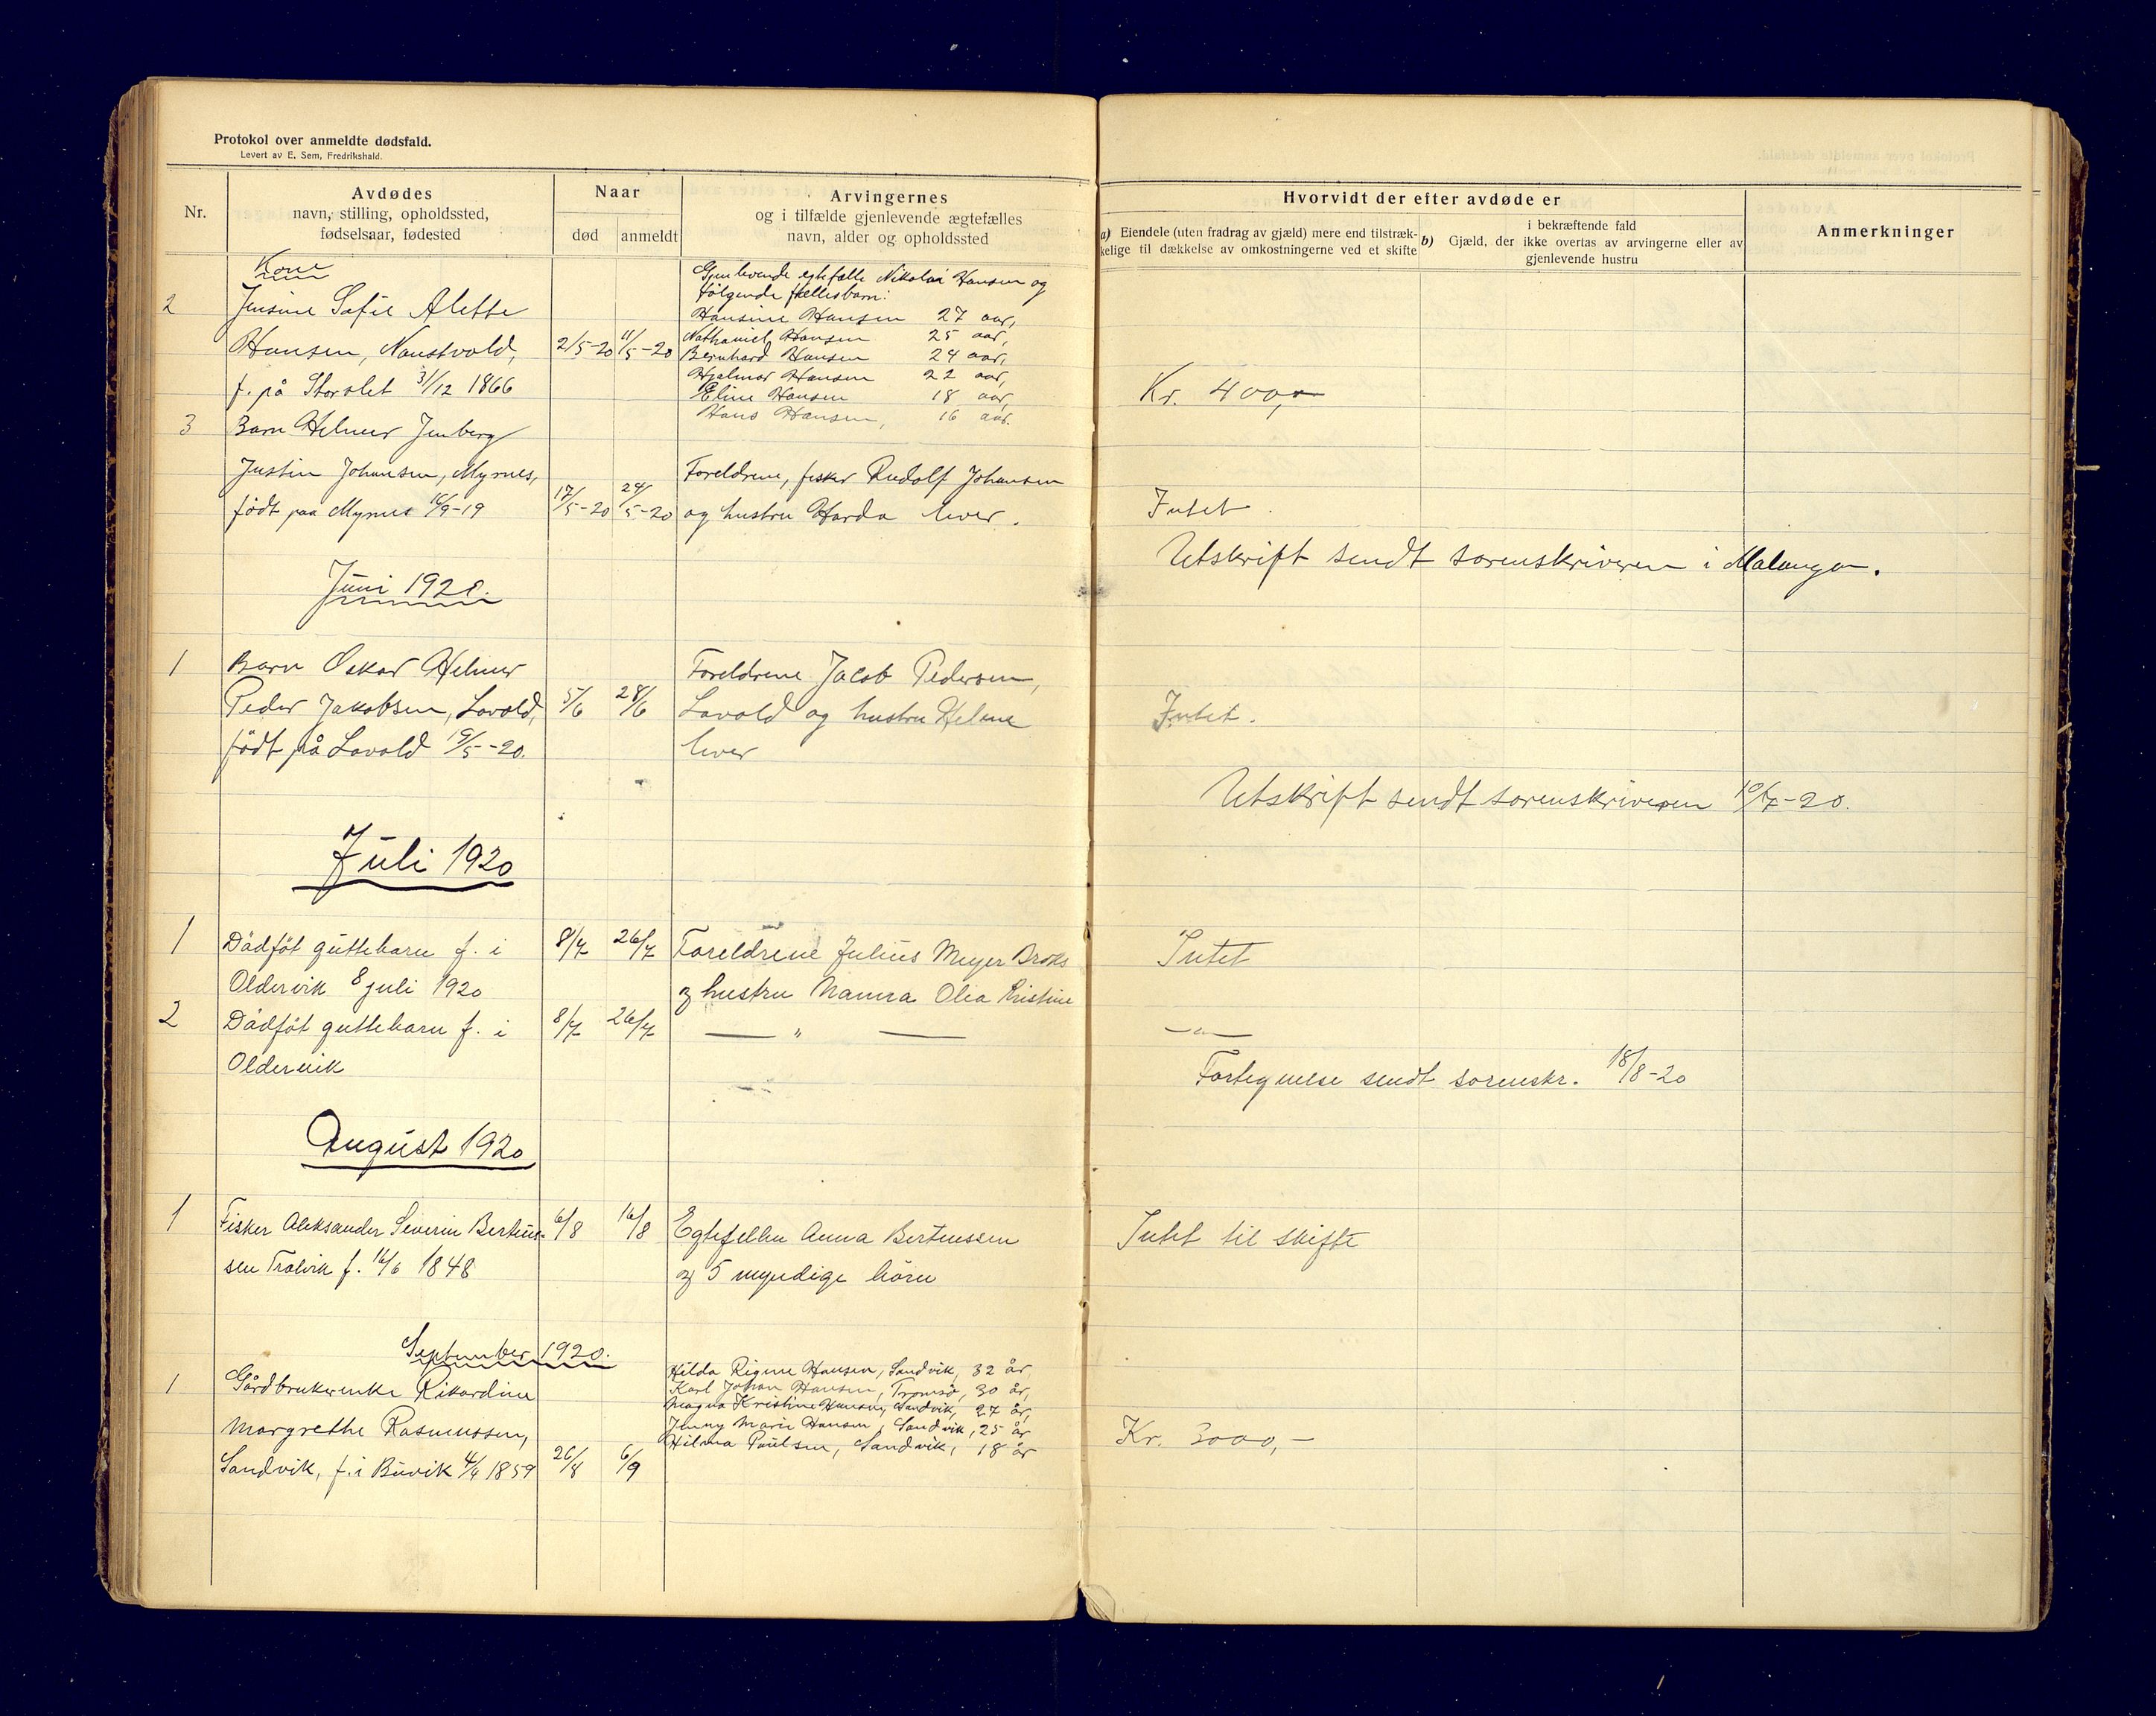 Protokol over anmeldte dødsfald.
Levert av E. Sem, Fredrikshald.
Nr.
Avdødes
navn, stilling, opholdssted,
fødselsaar, fødested
Naar
død
anmeldt
Arvingernes
og i tilfælde gjenlevende ægtefælles
navn, alder og opholdssted
Hvorvidt der efter avdøde er
a) Eiendele (uten fradrag av gjæld) mere end tilstræk-
kelige til dækkelse av omkostningerne ved et skifte
b) Gjæld, der
i bekræftende fald
ikke overtas av arvingerne eller av
gjenlevende hustru
Anmerkninger
2
Kone
Jensine Sofie Alette
Hansen, Naustvold,
f. på Storslet 31/12 1866
2/5-20
11/5-20
Gjenlevende egtefælle Nikolai Hansen og
følgende fællesbarn:
Hansine Hansen 27 aar,
Nathaniel Hansen 25 aar,
Bernhard Hansen 24 aar,
Hjalmar Hansen 22 aar,
Eline Hansen 18 aar,
Hans Hansen, 16 aar.
Kr. 400,-
3
Barn Helmer Jenberg
Justin Johansen, Myrnes,
født paa Myrnes 16/9-19
17/5-20
24/5-20
Foreldrene, fisker Rudolf Johansen
og hustru Harda lever.
Intet.
Utskrift sendt sorenskriveren i Malangen.
Juni 1920.
1
Barn Oskar Helmer
Peder Jakobsen, Lavold,
født på Lavold 19/5-20.
5/6
28/6
Foreldrene Jacob Pedersen,
Lavold og hustru Helene
lever
Intet.
Utskrift sendt sorenskriveren 10/7-20.
Juli 1920
1
Dødføt guttebarn f. i
Oldervik 8 juli 1920
8/7
26/7
Foreldrene Julius Meyer Broks
og hustru Nanna Olea Kristine
Intet
2
Dødføt guttebarn f. i
Oldervik
8/7
26/7
— " —
— " —
Fortegnelse sendt sorenskr. 18/8-20
August 1920
1
Fisker Aleksander Severin Berteus-
sen Trolvik f. 16/6 1848
6/8
16/8
Egtefellen Anna Berteussen
og 5 myndige børn
Intet til skifte
September 1920.
1
Gårdbrukerenke Rikardine
Margrethe Rasmussen,
Sandvik, f. i Buvik 4/4 1859
26/8
6/9
Hilda Rigine Hansen, Sandvik, 32 år,
Karl Johan Hansen, Tromsø, 30 år,
Magna Kristine Hansen, Sandvik, 27 år,
Jenny Marie Hansen, Sandvik, 25 år
Hilma Paulsen, Sandvik, 18 år
Kr. 3000,-